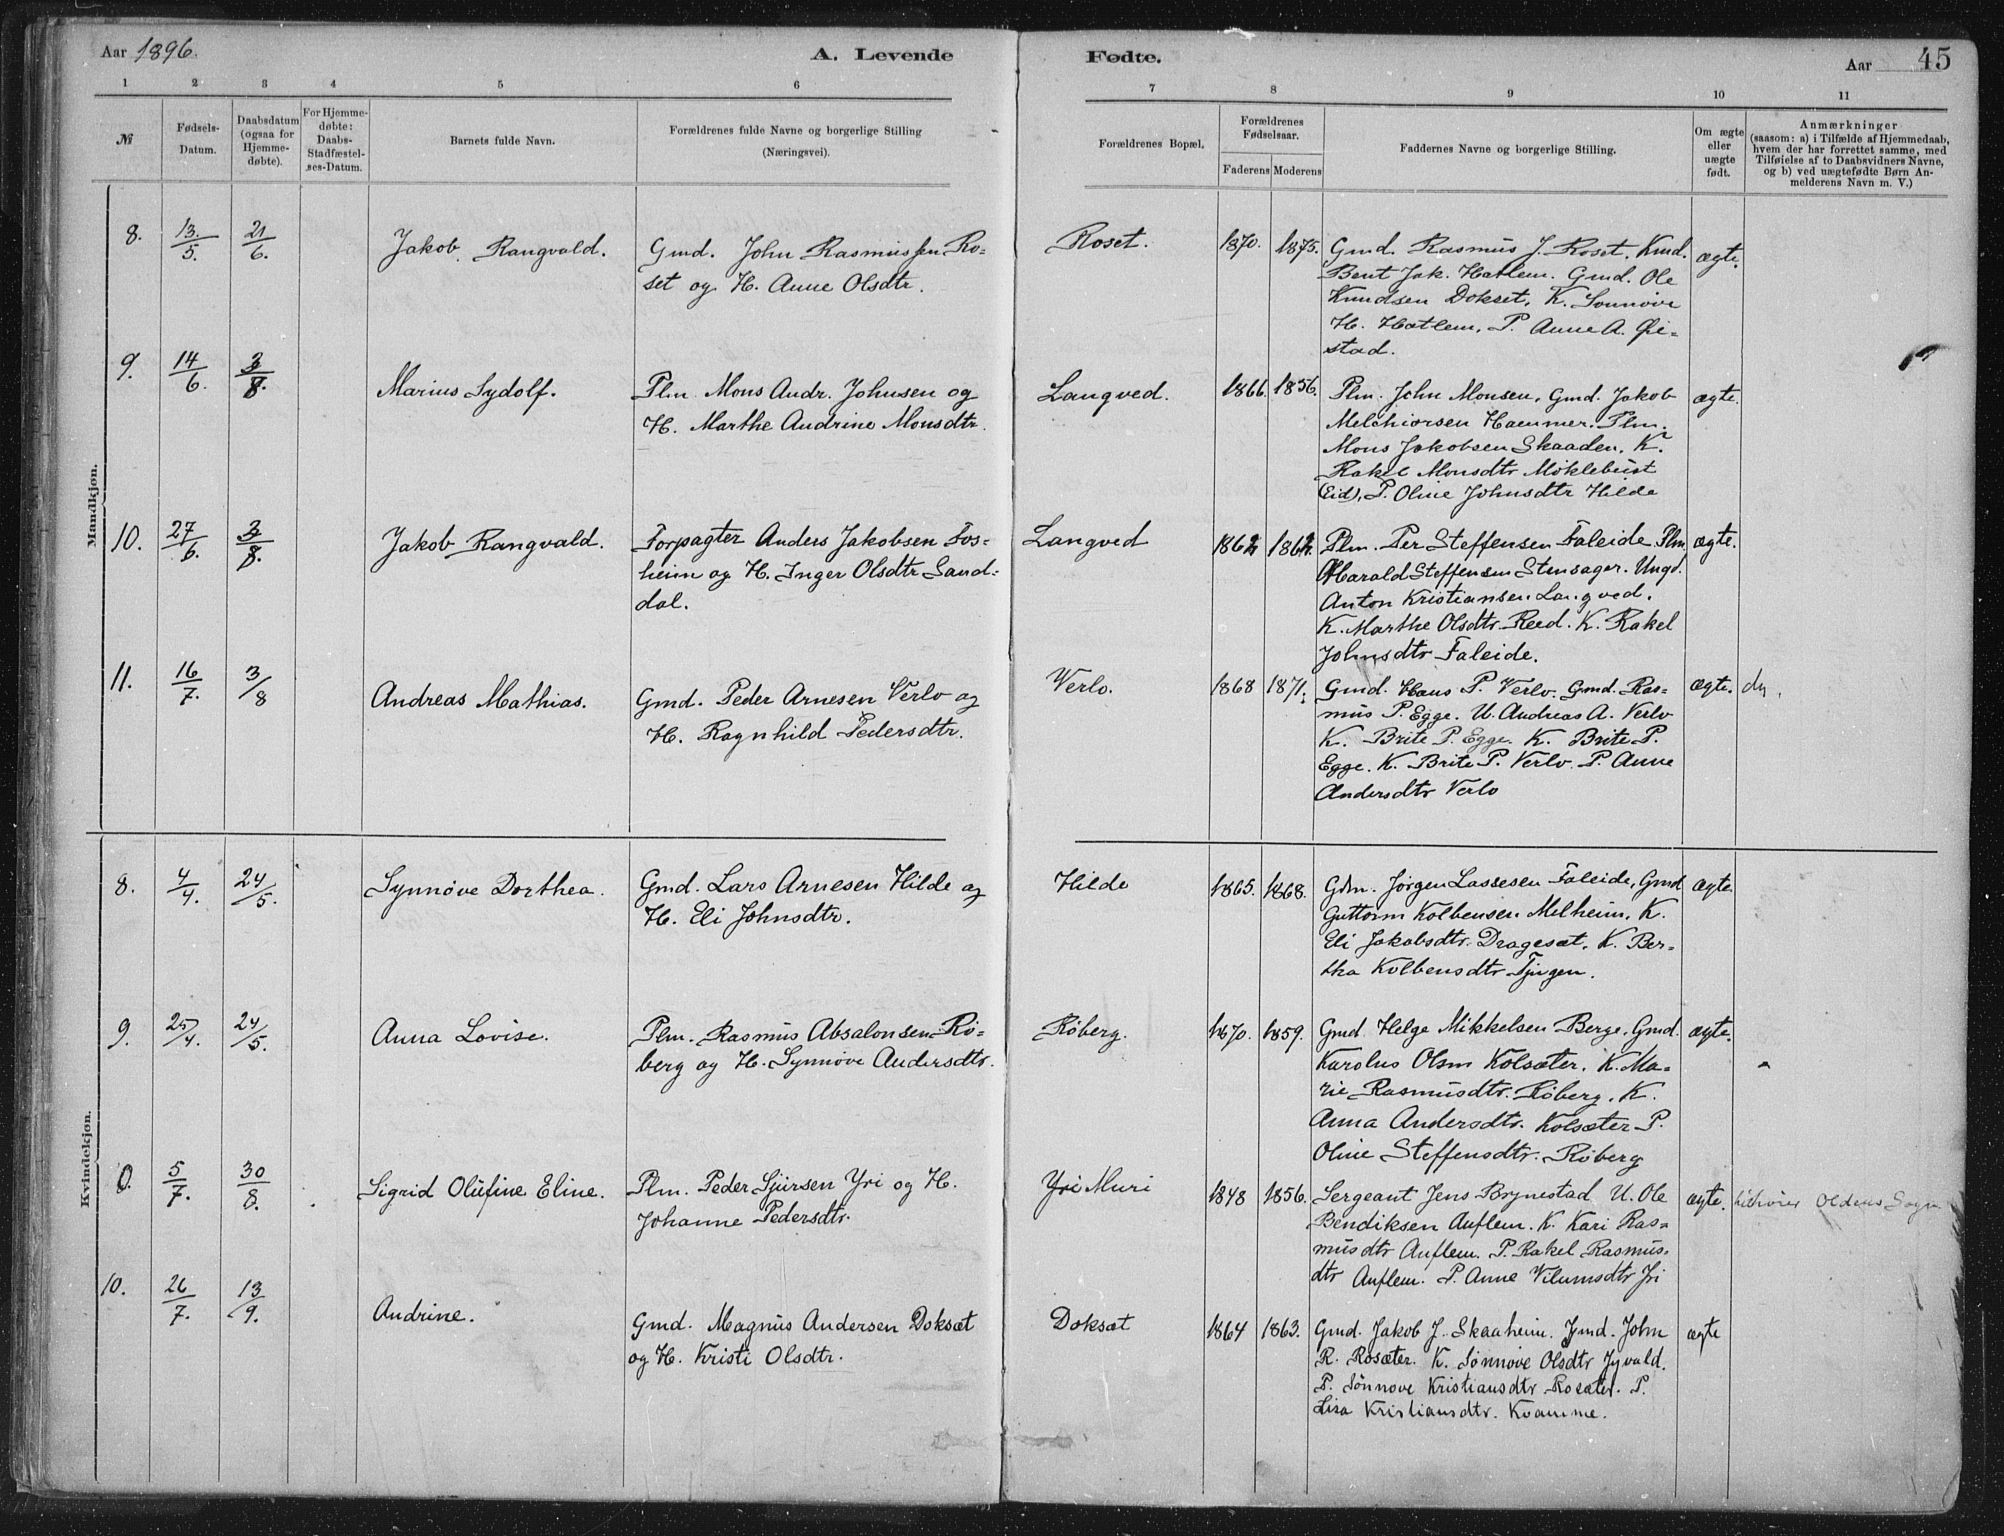 Aar 1896.
A. Levende
Fødte.
Aar
45
1 2 3 4 5 6 7 8 9 10 11
№
Fødsels-
Datum.
Daabsdatum
(ogsaa for
Hjemme-
døbte).
For Hjemme-
døbte:
Daabs-
Stadfæstel-
ses-Datum.
Barnets fulde Navn.
Forældrenes fulde Navne og borgerlige Stilling
(Næringsvei).
Forældrenes Bopæl.
Forældrenes
Fødselsaar.
Faderens Moderens
Faddernes Navne og borgerlige Stilling.
Om ægte
eller
uægte
født.
Anmærkninger
(saasom: a) i Tilfælde af Hjemmedaab,
hvem der har forrettet samme, med
Tilføielse af to Daabsvidners Navne,
og b) ved uægtefødte Børn An-
melderens Navn m. V.)
Mandkjøn.
8. 13/5. 21/6.
Jakob Rangvald.
Gmd. John Rasmussen Ro-
set og H. Anne Olsdtr.
Roset.
1870. 1875.
Gmd. Rasmus J. Roset. Kmd.
Bent Jak. Hatlem. Gmd. Ole
Knudsen Dokset, K. Sønnøve
H. Hatlem, P. Anne A. Øi-
stad.
ægte.
9. 14/6. 3/8.
Marius Sydolf.
Plm. Mons Andr. Johnsen og
H. Marthe Andrine Monsdtr.
Langved.
1866. 1856.
Plm. John Monsen, Gmd. Jakob
Melchiorsen Hammer. Plm.
Mons Jakobsen Skaaden. K.
Rakel Monsdtr Møklebust
(Eid), P. Oline Johnsdtr Hilde
ægte.
10. 27/6. 3/8.
Jakob Rangvald.
Forpagter Anders Jakobsen Fos-
heim og H. Inger Olsdtr Sand-
dal.
Langved
1862 1862.
Plm. Per Steffensen Faleide. Plm.
Harald Steffensen Stensager. Ungd.
Anton Kristiansen Langved.
K. Marthe Olsdtr. Reed. K. Rakel
Johnsdtr Faleide.
ægte.
11. 16/7. 3/8
Andreas Mathias.
Gmd. Peder Arnesen Verlo og
H. Ragnhild Pedersdtr.
Verlo.
1868 1871.
Gmd. Hans P. Verlo. Gmd. Ras-
mus P. Egge. U. Andreas A. Verlo
K. Brite P. Egge. K. Brite P.
Egge. K. Brite P. Verlo. P. Anne
Andersdtr Verlo
ægte.
Kvindekjøn.
8. 4/4. 24/5.
Synnøve Dorthea.
Gmd. Lars Arnesen Hilde og
H. Eli Johnsdtr.
Hilde
1865. 1868.
Gdm. Jørgen Lassesen Faleide, Gmd
Guttorm Kolbensen Melheim. K.
Eli Jakobsdtr. Dragesæt. K. Ber-
tha Kolbensdtr Tjugen.
ægte.
9. 25/4. 24/5.
Anna Lovise.
Plm. Rasmus Absalonsen Rø-
berg og H. Synnøve Andersdtr.
Røberg.
1870. 1859.
Gmd. Helge Mikkelsen Berge. Gmd.
Karolus Olsen Kolsæter. K. Ma-
rie Rasmusdtr. Røberg. K.
Anna Andersdtr. Kolsæter P.
Oline Steffensdtr. Røberg
ægte.
0. 5/7. 30/8.
Sigrid Olufine Eline.
Plm. Peder Sjursen Yri og H.
Johanne Pedersdtr.
Yri Muri
1848 1856.
Sergeant Jens Brynestad. U. Ole
Bendiksen Auflem. K. Kari Ras-
musdtr Auflem. P. Rakel Rasmus-
dtr Auflem. P. Anne Vilumsdtr Yri
ægte.
tilhører Oldens Sogn
10. 26/7. 13/9.
Andrine.
Gmd. Magnus Andersen Doksæt
og H. Kristi Olsdtr.
Doksæt
1864 1863.
Gmd. Jakob J. Skaaheim. Gmd. John
R. Rosæter. K. Sønnøve Olsdtr Jyvald.
P. Sønnove Kristiansdtr Rosæter. P.
Lisa Kristiansdtr. Kvamme.
ægte